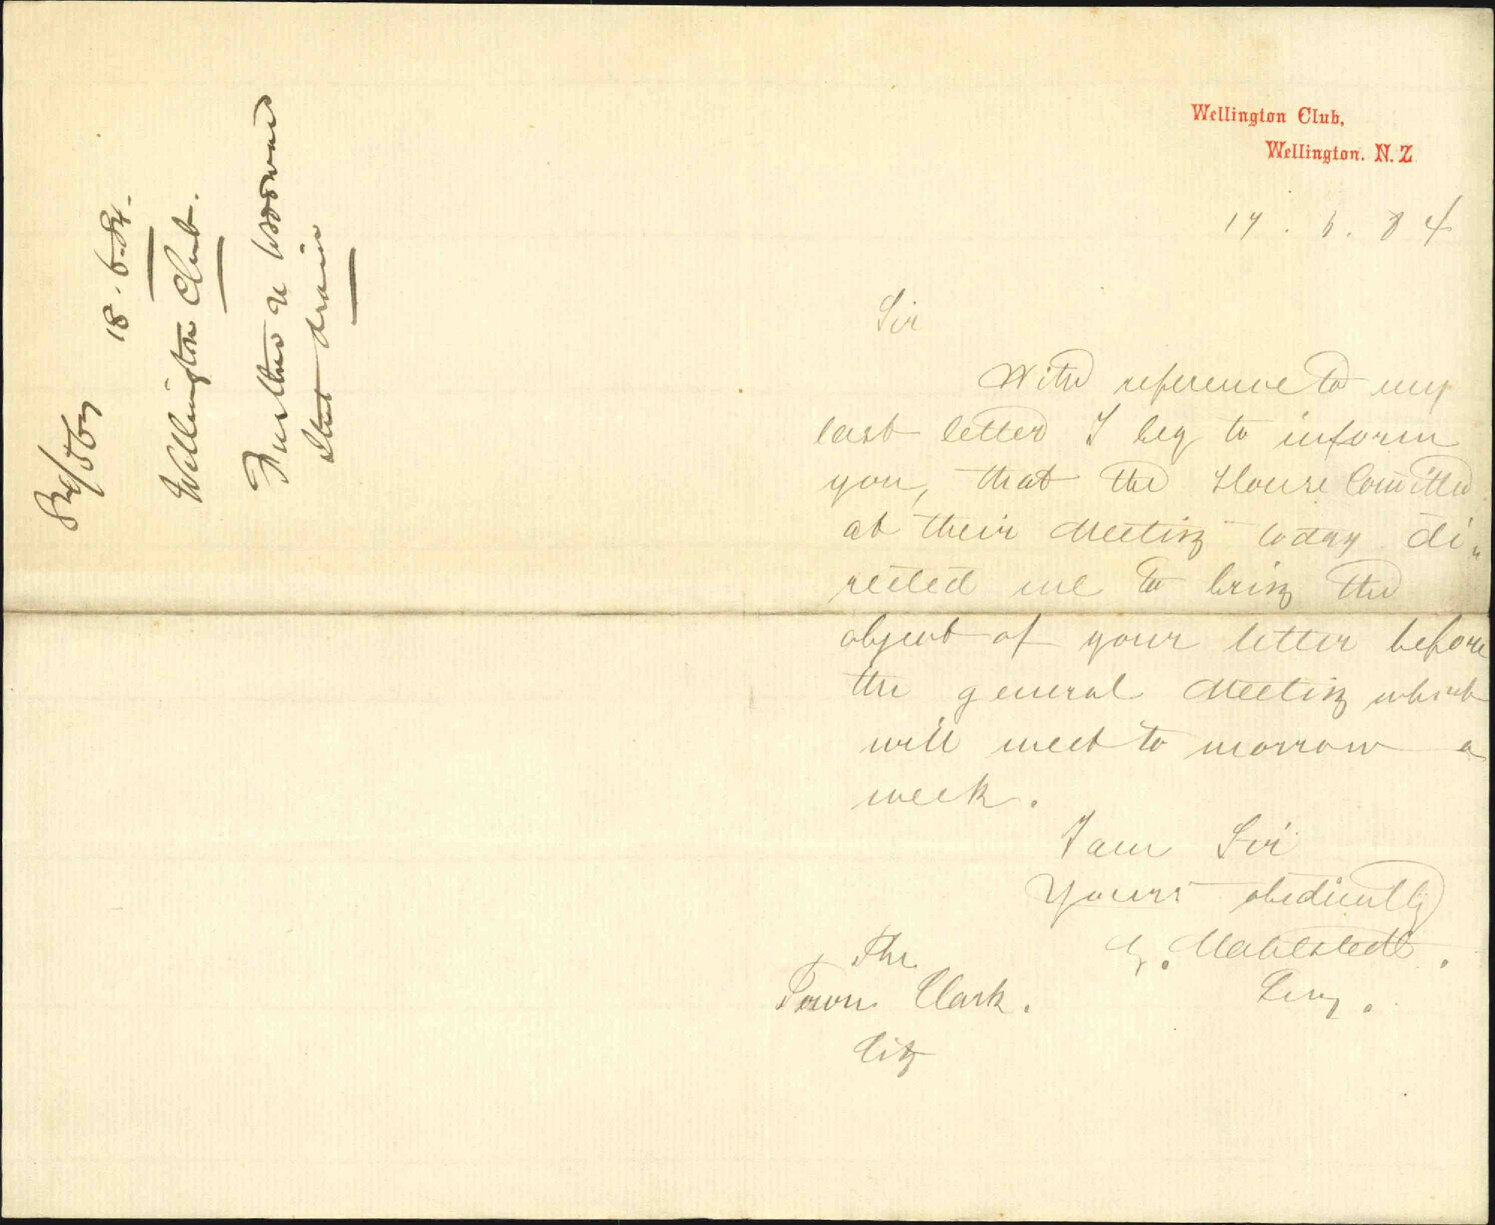 Wellington Club,
Wellington. N. Z
17 . 6 . 84
Sir
With reference to my
last letter I beg to inform
you, that the House Comittee
at their Meeting today di„
rected me to bring the
object of your letter before
the general Meeting which
will meet to morrow a
week .
I am Sir
Yours obediently
Mahlstedt .
Secy .
The
Town Clark .
City
18 . 6 . 84 .
Wellington Club .
Further re
Street drain